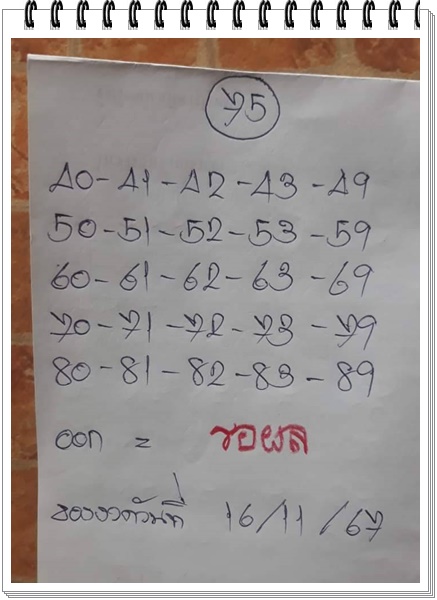 75
40 - 41 - 42 - 43 - 49
50 - 51 - 52 - 53 - 59
60 - 61 - 62 - 63 - 69
70 - 71 - 72 - 73 - 79
80 - 81 - 82 - 83 - 89
ออก = รอผล
ของงวดวันที่ 16/11/67